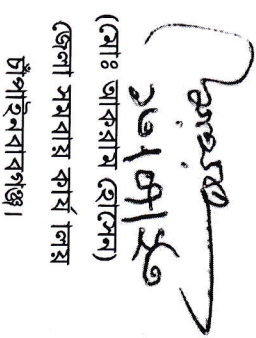 (মোঃ আকরাম হোসেন)
জেলা সমবায় কার্যালয়
চাঁপাইনবাবগঞ্জ।